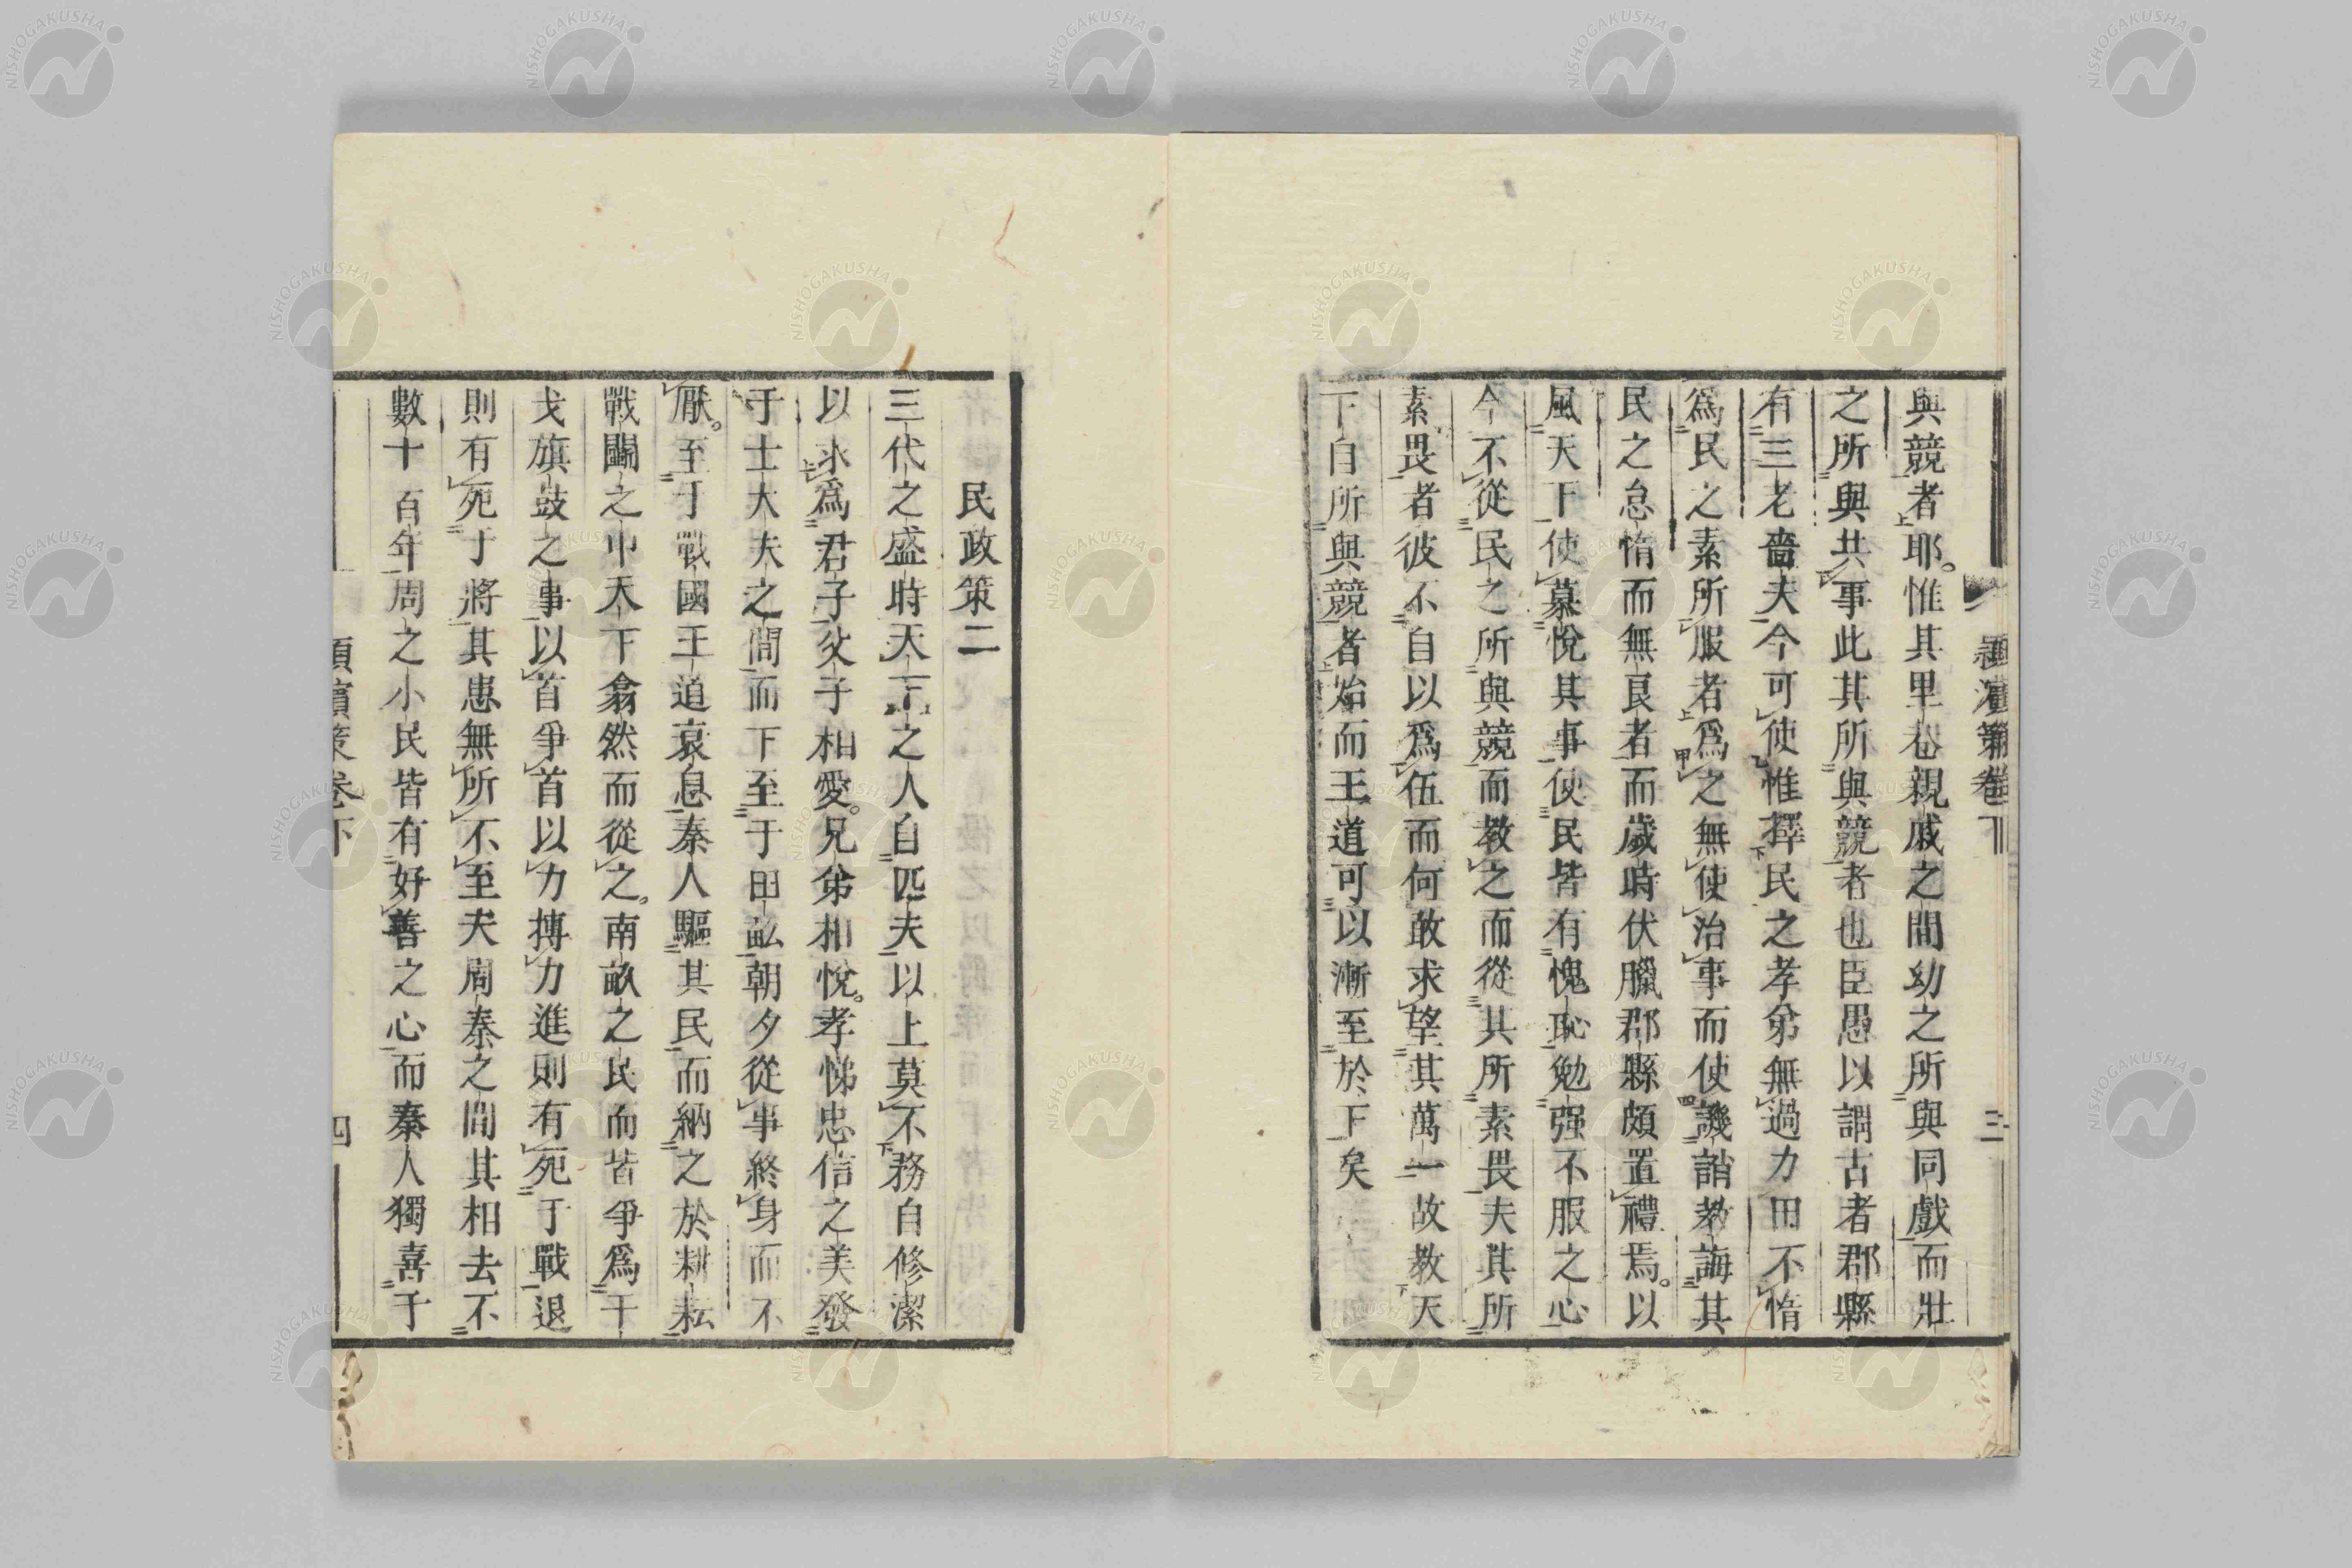 與競者耶惟其里巷親戚之間幼之所與同戲而壯
之所與共事此其所與競者也臣愚以謂古者郡縣
有三老嗇夫今可使惟擇民之孝弟無過力田不惰
爲民之素所服者爲之無使治事而使譏誚教誨其
民之怠惰而無良者而歲時伏臘郡縣頗置禮焉以
風天下使慕悅其事使民皆有愧恥勉强不服之心
今不從民之所與競而教之而從其所素畏夫其所
素畏者彼不自以爲伍而何敢求望其萬一故教天
下自所與競者始而王道可以漸至於下矣
潁濱策卷下
三
民政策二
三代之盛時天下之人自匹夫以上莫不務自修潔
以求爲君子父子相愛兄弟相悅孝悌忠信之美發
于士大夫之間而下至于田畝朝夕從事終身而不
厭至于戰國王道衰息秦人驅其民而納之於耕耘
戰鬭之中天下翕然而從之南畝之民而皆爭爲干
戈旗鼓之事以首爭首以力搏力進則有死于戰退
則有死于將其患無所不至夫周秦之間其相去不
數十百年周之小民皆有好善之心而秦人獨喜于
潁濱策卷下
四
NISHOGAKUSHA